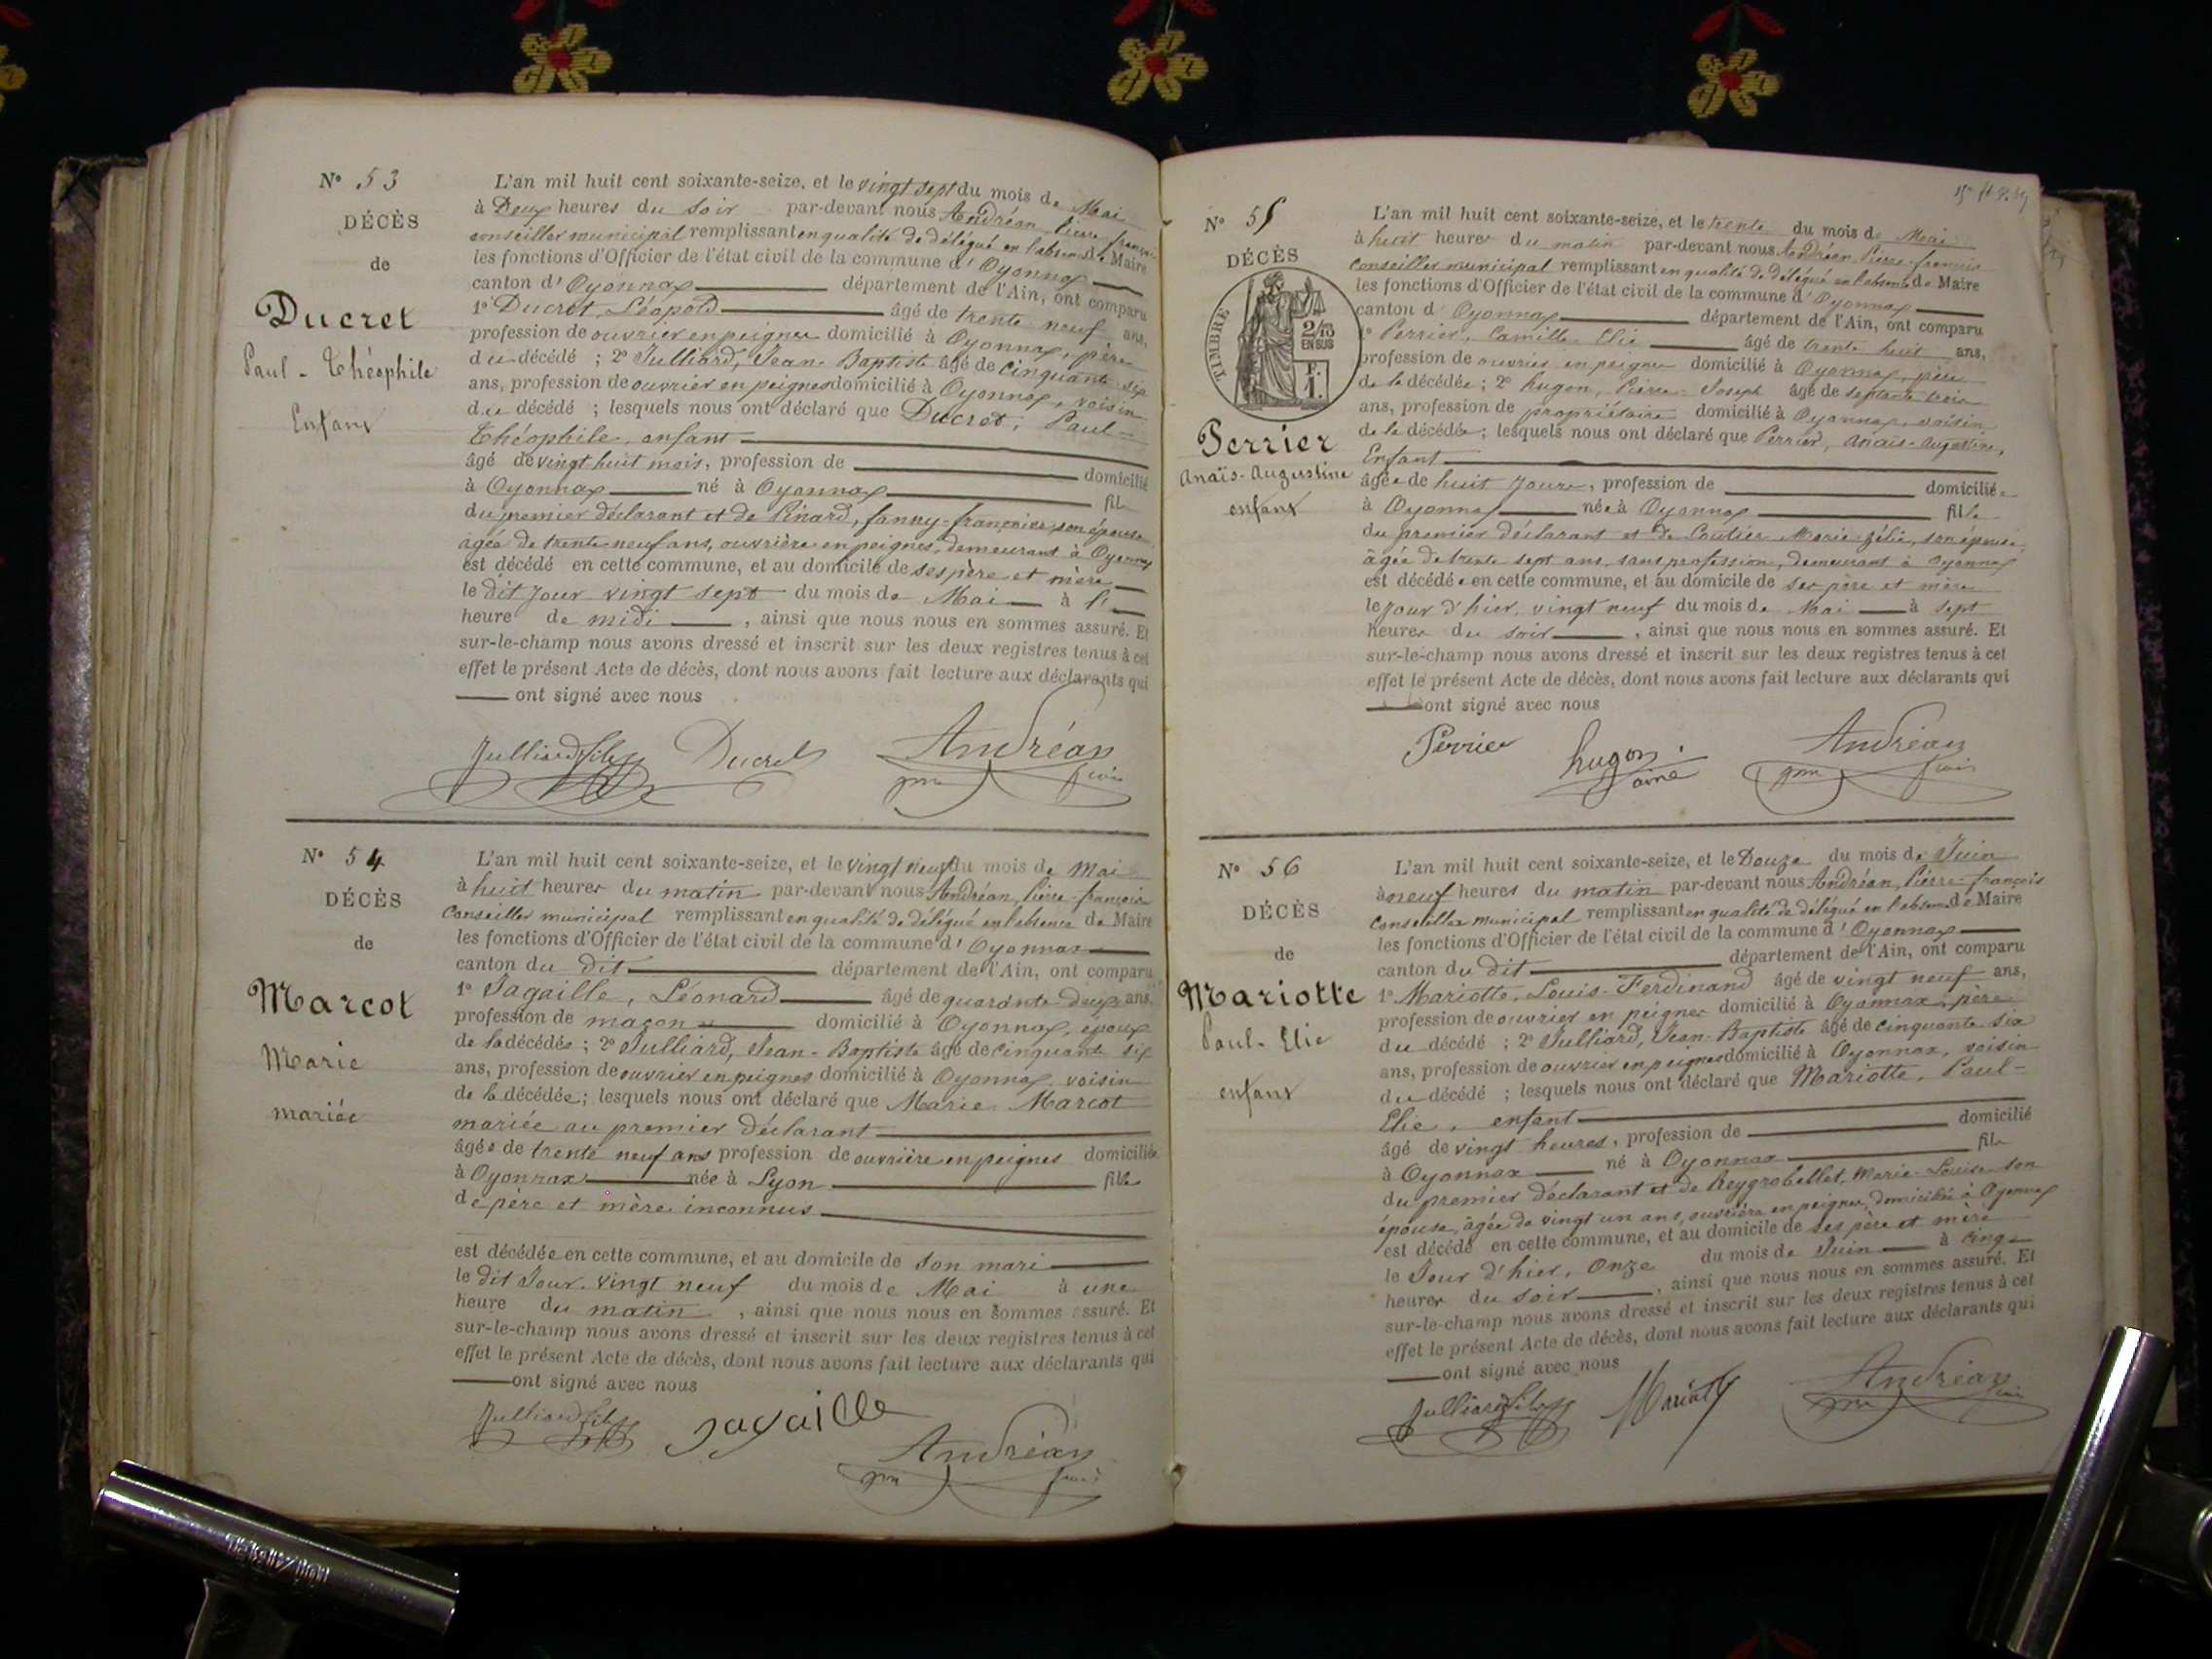 N° 53
DÉCÈS
de
Ducret
Paul-Théophile
Enfant
L'an mil huit cent soixante-seize, et le vingt sept du mois de Mai
à Deux heures du soir par-devant nous Andréan Pierre françois
conseiller municipal remplissant en qualité de délégué en l'absence de Maire
les fonctions d'Officier de l'état civil de la commune d'Oyonnax
canton d'Oyonnax département de l'Ain, ont comparu
1° Ducret, Léopold âgé de trente neuf ans,
profession de ouvrier en peignes domicilié à Oyonnax, père
du décédé ; 2° Julliard, Jean-Baptiste âgé de cinquante six
ans, profession de ouvrier en peignes domicilié à Oyonnax, voisin
du décédé ; lesquels nous ont déclaré que Ducret, Paul-
Théophile, enfant
âgé de vingt huit mois, profession de domicilié
à Oyonnax né à Oyonnax fils
du premier déclarant et de Pinard, fanny-françoise son épouse
âgée de trente neuf ans, ouvrière en peignes, demeurant à Oyonnax
est décédé en cette commune, et au domicile de ses père et mère
le dit jour vingt sept du mois de Mai à l'
heure de midi , ainsi que nous nous en sommes assuré. Et
sur-le-champ nous avons dressé et inscrit sur les deux registres tenus à cet
effet le présent Acte de décès, dont nous avons fait lecture aux déclarants qui
ont signé avec nous
Julliard fils Ducret Andréan
N° 54
DÉCÈS
de
Marcot
Marie
mariée
L'an mil huit cent soixante-seize, et le vingt neuf du mois de Mai
à huit heures du matin par-devant nous Andréan, Pierre-françois
Conseiller municipal remplissant en qualité de délégué en l'absence de Maire
les fonctions d'Officier de l'état civil de la commune d'Oyonnax
canton du dit département de l'Ain, ont comparu
1° Jagaille, Léonard âgé de quarante deux ans,
profession de maçon domicilié à Oyonnax, époux
de la décédée ; 2° Julliard, Jean-Baptiste âgé de cinquante six
ans, profession de ouvrier en peignes domicilié à Oyonnax voisin
de la décédée ; lesquels nous ont déclaré que Marie Marcot
mariée au premier déclarant
âgée de trente neuf ans profession de ouvrière en peignes domiciliée
à Oyonnax née à Lyon fille
de père et mère inconnus
est décédée en cette commune, et au domicile de son mari
le dit Jour vingt neuf du mois de Mai à une
heure du matin , ainsi que nous nous en sommes assuré. Et
sur-le-champ nous avons dressé et inscrit sur les deux registres tenus à cet
effet le présent Acte de décès, dont nous avons fait lecture aux déclarants qui
ont signé avec nous
Julliard fils Jagaille Andréan
N° 55
DÉCÈS
TIMBRE
2/10
EN SUS
F.
1.
Perrier
Anaïs-Augustine
enfant
L'an mil huit cent soixante-seize, et le trente du mois de Mai
à huit heures du matin par-devant nous Andréan, Pierre-françois
Conseiller municipal remplissant en qualité de délégué en l'absence de Maire
les fonctions d'Officier de l'état civil de la commune d'Oyonnax
canton d'Oyonnax département de l'Ain, ont comparu
1° Perrier, Camille Elie âgé de trente huit ans,
profession de ouvrier en peignes domicilié à Oyonnax, père
de la décédée ; 2° hugon, Pierre-Joseph âgé de septante trois
ans, profession de propriétaire domicilié à Oyonnax, voisin
de la décédée ; lesquels nous ont déclaré que Perrier, Anaïs-Augustine,
Enfant
âgée de huit jours, profession de domiciliée
à Oyonnax née à Oyonnax fille
du premier déclarant et de Marie-Zélie, son épouse,
âgée de trente sept ans, sans profession, demeurant à Oyonnax
est décédée en cette commune, et au domicile de ses père et mère
le jour d'hier, vingt neuf du mois de Mai à sept
heures du soir , ainsi que nous nous en sommes assuré. Et
sur-le-champ nous avons dressé et inscrit sur les deux registres tenus à cet
effet le présent Acte de décès, dont nous avons fait lecture aux déclarants qui
ont signé avec nous
Perrier hugon aîné Andréan
N° 56
DÉCÈS
de
Mariotte
Paul-Elie
enfant
L'an mil huit cent soixante-seize, et le Douze du mois de Juin
à neuf heures du matin par-devant nous Andréan, Pierre-françois
Conseiller municipal remplissant en qualité de délégué en l'absence de Maire
les fonctions d'Officier de l'état civil de la commune d'Oyonnax
canton du dit département de l'Ain, ont comparu
1° Mariotte, Louis-Ferdinand âgé de vingt neuf ans,
profession de ouvrier en peignes domicilié à Oyonnax, père
du décédé ; 2° Julliard, Jean-Baptiste âgé de cinquante six
ans, profession de ouvrier en peignes domicilié à Oyonnax, voisin
du décédé ; lesquels nous ont déclaré que Mariotte, Paul-
Elie, enfant
âgé de vingt heures, profession de domicilié
à Oyonnax né à Oyonnax fils
du premier déclarant et de Reygrobellet, Marie-Louise son
épouse, âgée de vingt un ans, ouvrière en peignes, domiciliée à Oyonnax
est décédé en cette commune, et au domicile de ses père et mère
le Jour d'hier, Onze du mois de Juin à cinq
heures du soir , ainsi que nous nous en sommes assuré. Et
sur-le-champ nous avons dressé et inscrit sur les deux registres tenus à cet
effet le présent Acte de décès, dont nous avons fait lecture aux déclarants qui
ont signé avec nous
Julliard fils Andréan